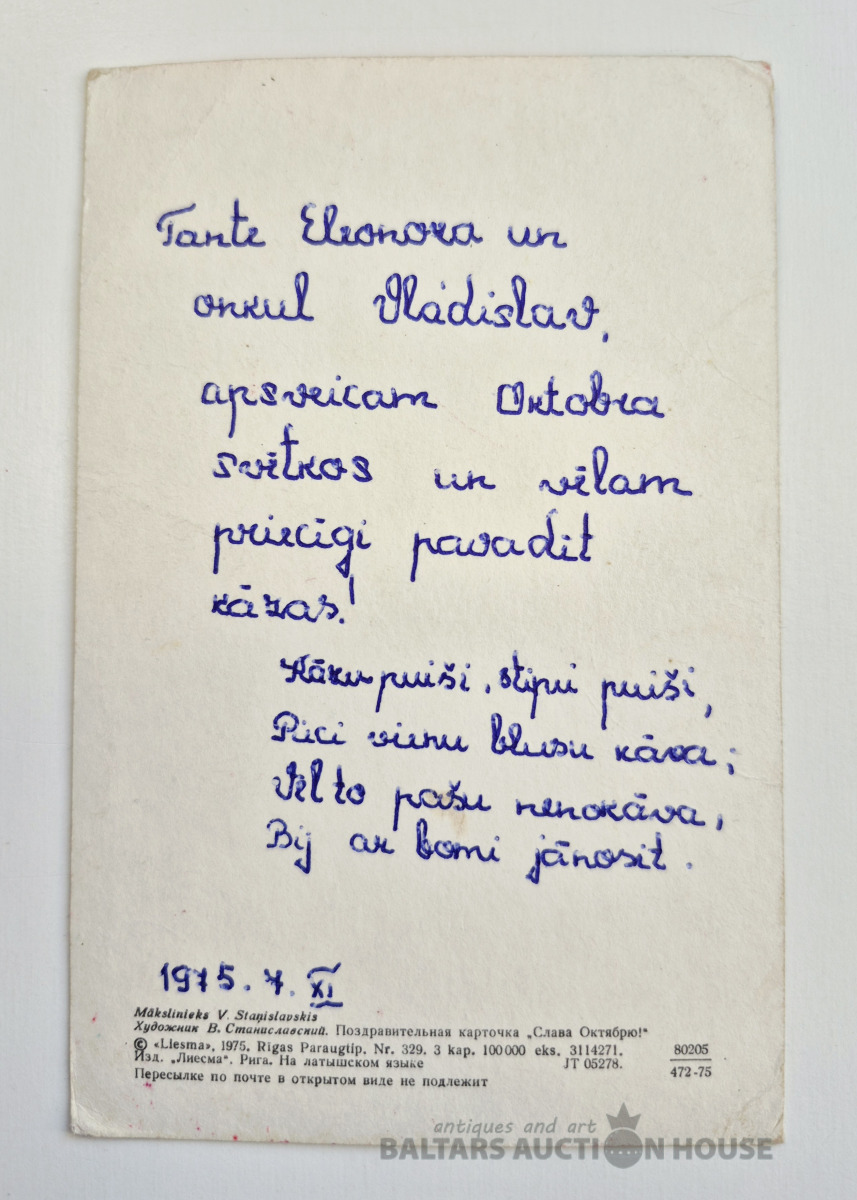 Tante Eleonora un
onkul Vladislav,
apsveicam Oktobra
svētkos un vēlam
priecīgi pavadīt
kāzas!
Kāzu puiši, stipri puiši,
Pieci vienu blusu kāva;
Vēl to pašu nenokāva,
Bij ar bomi jānosit.
1975. 7. XI
Mākslinieks V. Staņislavskis
Художник В. Станиславский. Поздравительная карточка „Слава Октябрю!"
© «Liesma», 1975. Rīgas Paraugtip. Nr. 329. 3 kap. 100 000 eks. 3114271.
Изд. „Лиесма". Рига. На латышском языке JT 05278.
Пересылке по почте в открытом виде не подлежит
80205
472-75
antiques and art
BALTARS AUCTION HOUSE